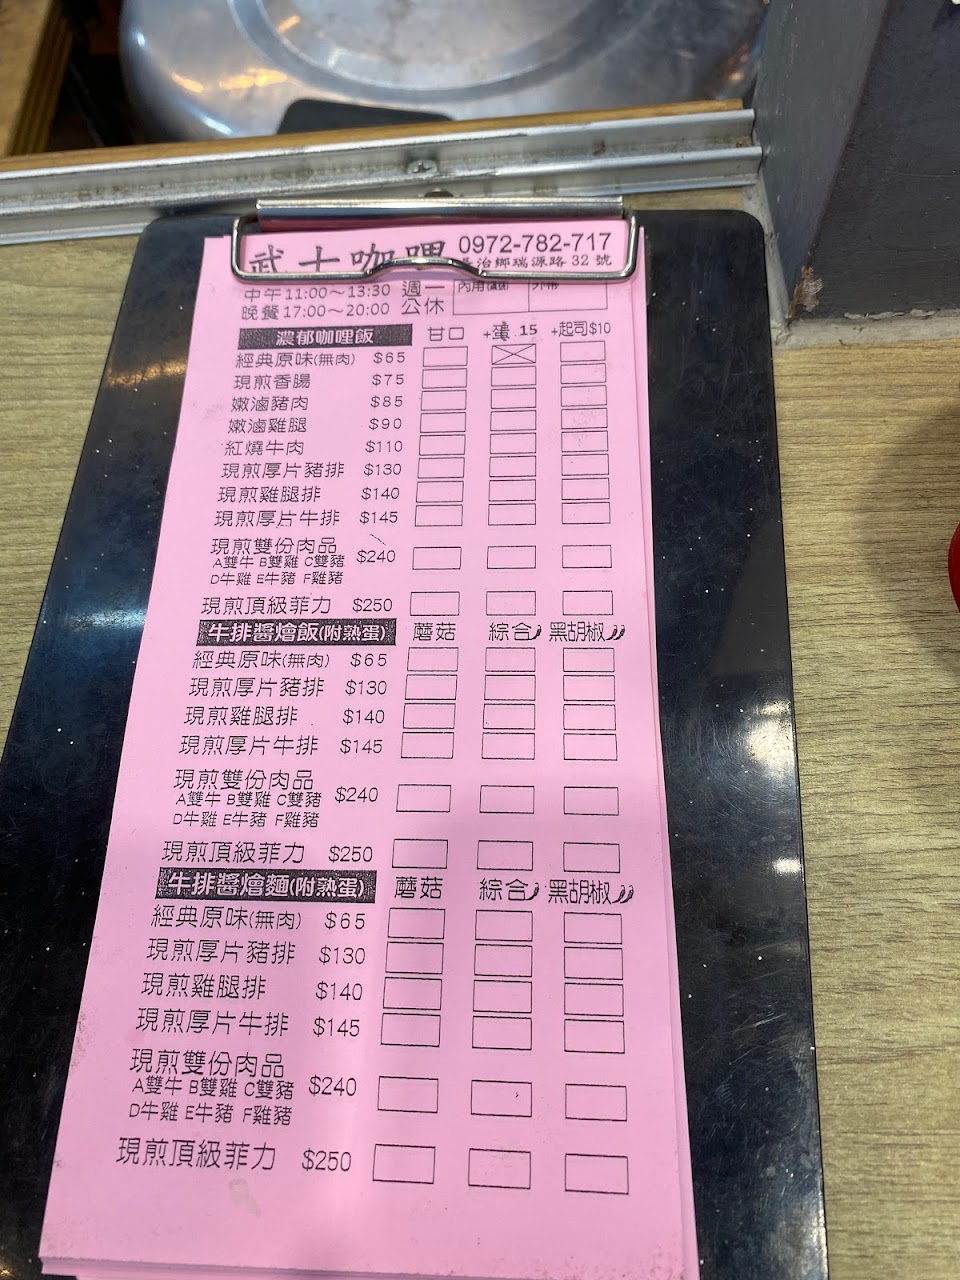 武士咖哩 0972-782-717
治鄉瑞源路 32 號
中午 11:00～13:30 週一 內用
晚餐 17:00～20:00 公休
濃郁咖哩飯 甘口 +蛋 15 +起司$10
經典原味(無肉) $65
現煎香腸 $75
嫩滷豬肉 $85
嫩滷雞腿 $90
紅燒牛肉 $110
現煎厚片豬排 $130
現煎雞腿排 $140
現煎厚片牛排 $145
現煎雙份肉品 $240
A雙牛 B雙雞 C雙豬
D牛雞 E牛豬 F雞豬
現煎頂級菲力 $250
牛排醬燴飯(附熟蛋) 蘑菇 綜合 黑胡椒
經典原味(無肉) $65
現煎厚片豬排 $130
現煎雞腿排 $140
現煎厚片牛排 $145
現煎雙份肉品 $240
A雙牛 B雙雞 C雙豬
D牛雞 E牛豬 F雞豬
現煎頂級菲力 $250
牛排醬燴麵(附熟蛋) 蘑菇 綜合 黑胡椒
經典原味(無肉) $65
現煎厚片豬排 $130
現煎雞腿排 $140
現煎厚片牛排 $145
現煎雙份肉品 $240
A雙牛 B雙雞 C雙豬
D牛雞 E牛豬 F雞豬
現煎頂級菲力 $250